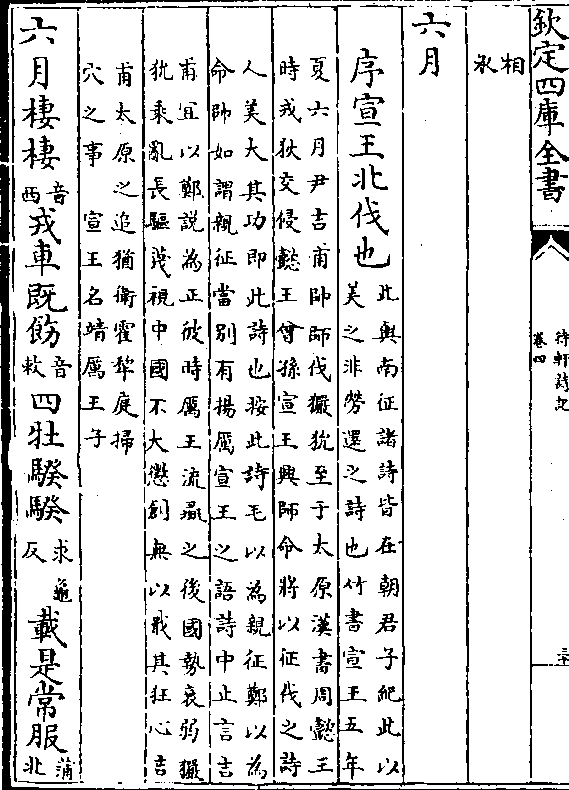 欽定四庫全書
待軒詩記
卷四
相
承
六月
序宣王北伐也
此與南征諸詩皆在朝君子紀此以
美之非勞還之詩也竹書宣王五年
夏六月尹吉甫帥師伐玁狁至于太原漢書周懿王
時戎狄交侵懿王曾孫宣王興師命將以征伐之詩
人美大其功即此詩也按此詩毛以為親征鄭以為
命帥如謂親征當別有揚厲宣王之語詩中止言吉
甫宜以鄭說為正彼時厲王流彘之後國勢衰弱玁
狁乘亂長驅蔑視中國不大懲創無以戢其狂心吉
甫太原之追猶衛霍犂庭掃
穴之事 宣王名靖厲王子
六月棲棲音西戎車既飭音敕四牡騤騤求龜反載是常服蒲北